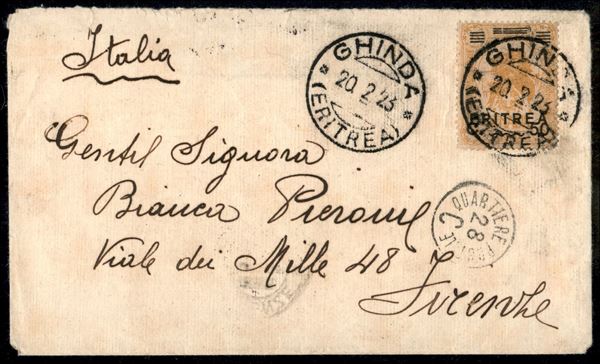 Italia
GHINDA
20. 2. 23
(ERITREA)
GHINDA
20. 2. 23
(ERITREA)
ERITREA
50
Gentil Signora
Bianca
Viale dei Mille 48
Firenze
QUARTIERE
28